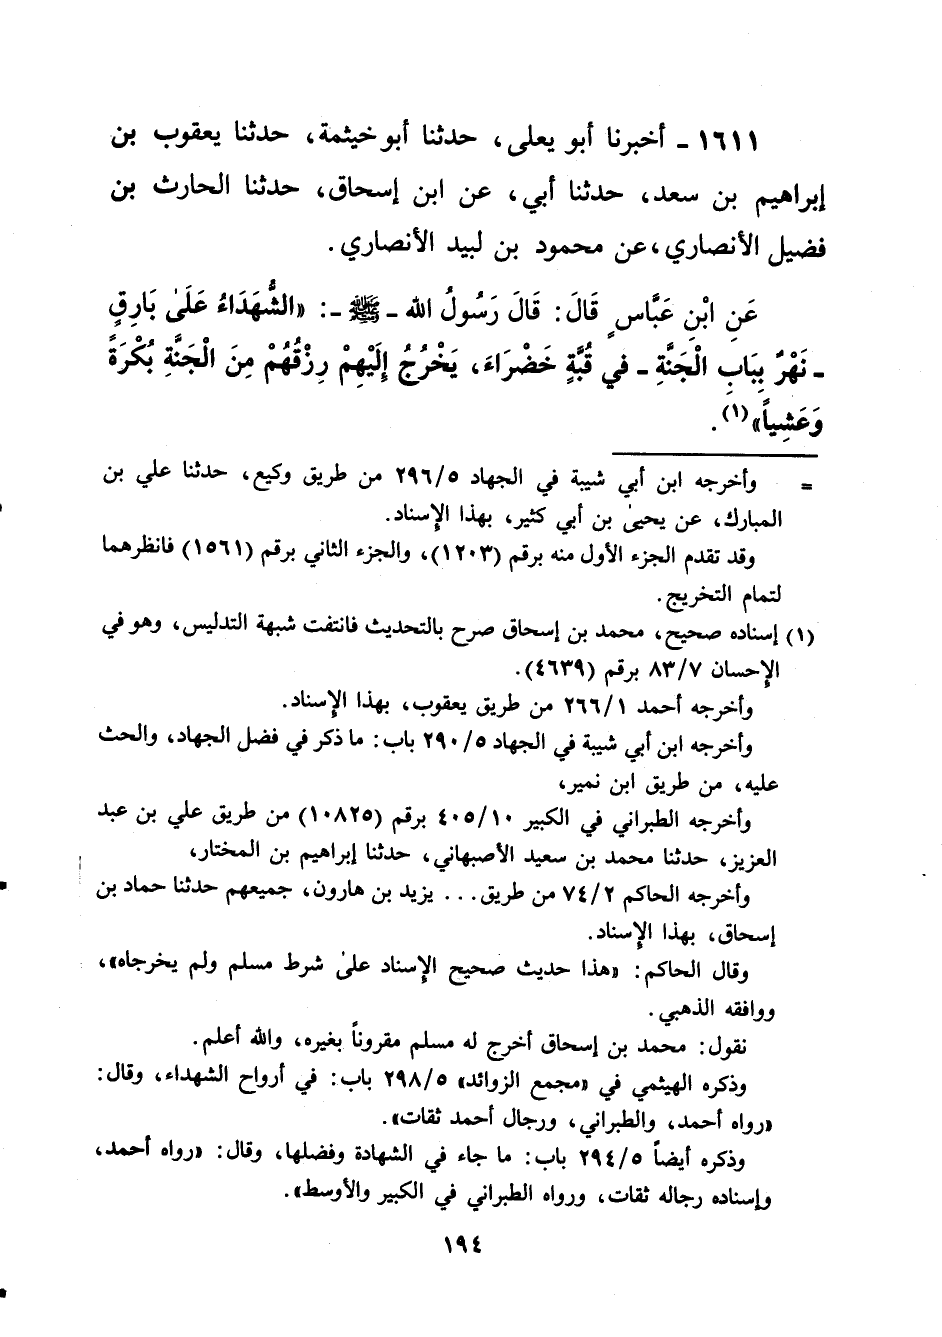 ١٦١١ ـ أخبرنا أبو يعلى، حدثنا أبو خيثمة، حدثنا يعقوب بن
إبراهيم بن سعد، حدثنا أبي، عن ابن إسحاق، حدثنا الحارث بن
فضيل الأنصاري، عن محمود بن لبيد الأنصاري.
عَنِ ابْنِ عَبَّاسٍ قَالَ: قَالَ رَسُولُ الله ـ ﷺ ـ: «الشُّهَدَاءُ عَلَىٰ بَارِقٍ
ـ نَهْرٌ بِبَابِ الْجَنَّةِ ـ في قُبَّةٍ خَضْرَاءَ، يَخْرُجُ إِلَيْهِمْ رِزْقُهُمْ مِنَ الْجَنَّةِ بُكْرَةً
وَعَشِياً»(١).
= وأخرجه ابن أبي شيبة في الجهاد ٢٩٦/٥ من طريق وكيع، حدثنا علي بن
المبارك، عن يحيىٰ بن أبي كثير، بهذا الإسناد.
وقد تقدم الجزء الأول منه برقم (١٢٠٣)، والجزء الثاني برقم (١٥٦١) فانظرهما
لتمام التخريج.
(١) إسناده صحيح، محمد بن إسحاق صرح بالتحديث فانتفت شبهة التدليس، وهو في
الإحسان ٨٣/٧ برقم (٤٦٣٩).
وأخرجه أحمد ٢٦٦/١ من طريق يعقوب، بهذا الإسناد.
وأخرجه ابن أبي شيبة في الجهاد ٢٩٠/٥ باب: ما ذكر في فضل الجهاد، والحث
عليه، من طريق ابن نمير،
وأخرجه الطبراني في الكبير ٤٠٥/١٠ برقم (١٠٨٢٥) من طريق علي بن عبد
العزيز، حدثنا محمد بن سعيد الأصبهاني، حدثنا إبراهيم بن المختار،
وأخرجه الحاكم ٧٤/٢ من طريق... يزيد بن هارون، جميعهم حدثنا حماد بن
إسحاق، بهذا الإسناد.
وقال الحاكم: «هذا حديث صحيح الإسناد علىٰ شرط مسلم ولم يخرجاه»،
ووافقه الذهبي.
نقول: محمد بن إسحاق أخرج له مسلم مقروناً بغيره، والله أعلم.
وذكره الهيثمي في «مجمع الزوائد» ٢٩٨/٥ باب: في أرواح الشهداء، وقال:
«رواه أحمد، والطبراني، ورجال أحمد ثقات».
وذكره أيضاً ٢٩٤/٥ باب: ما جاء في الشهادة وفضلها، وقال: «رواه أحمد،
وإسناده رجاله ثقات، ورواه الطبراني في الكبير والأوسط».
١٩٤